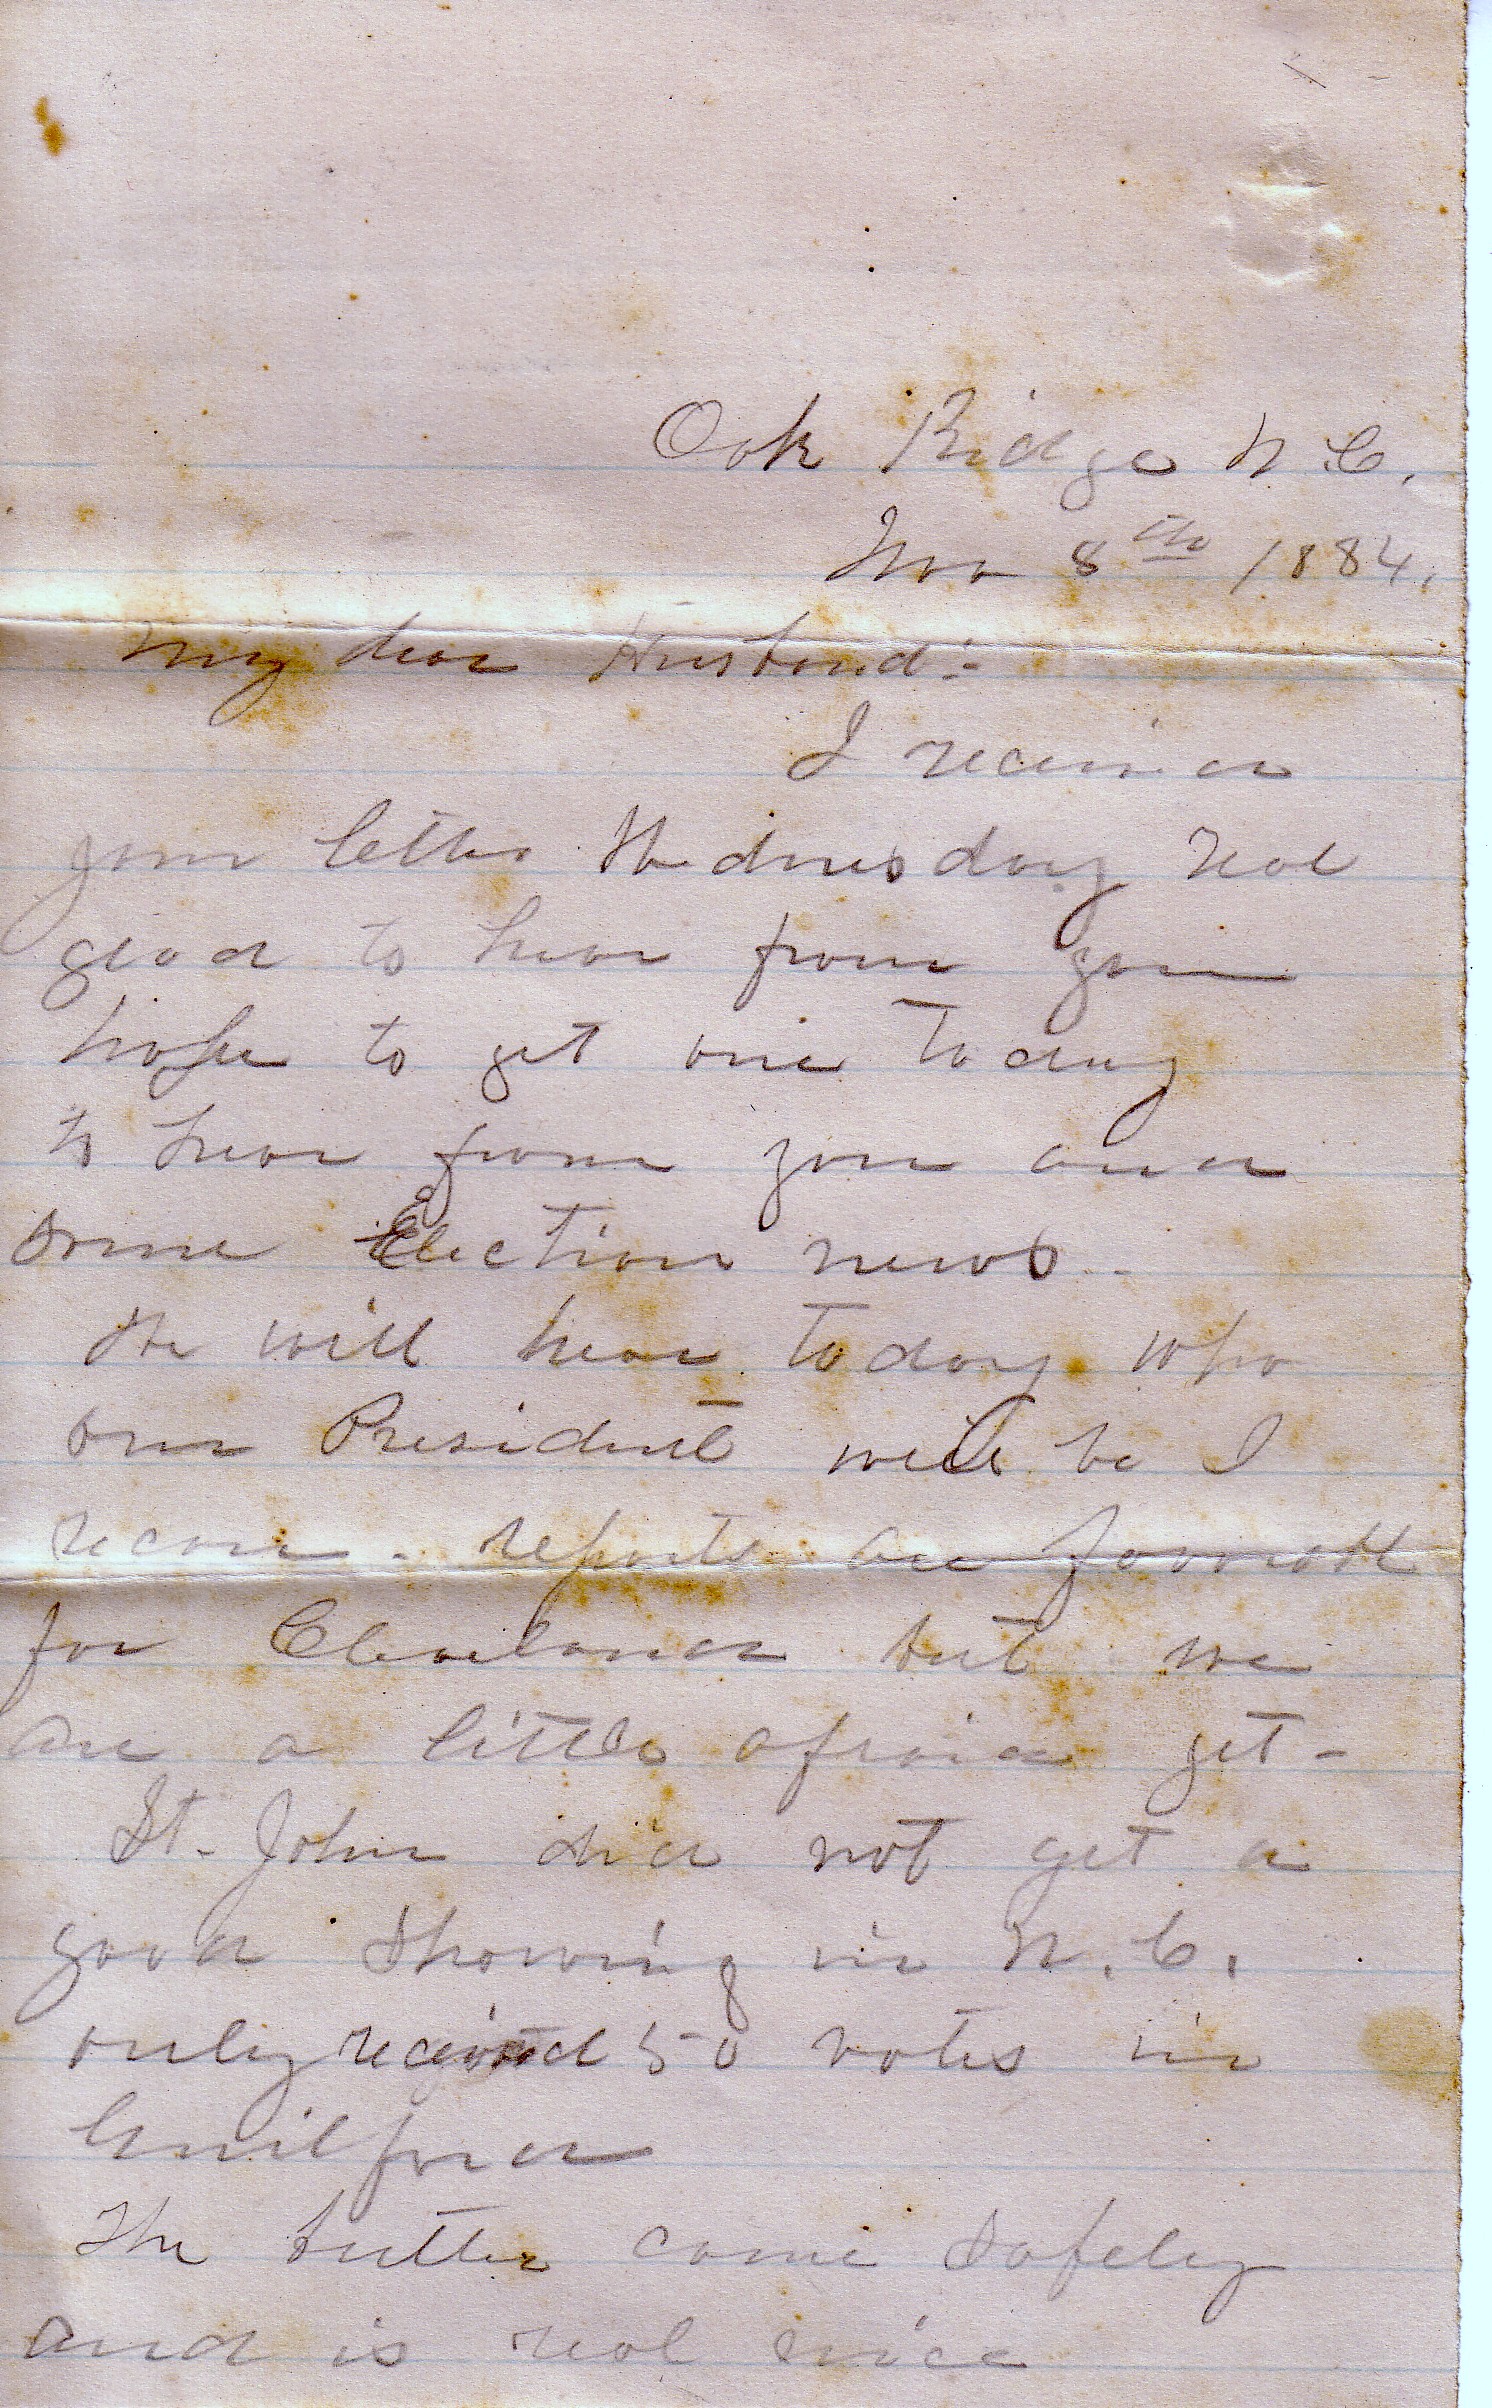 Oak Ridge N.C.
Nov 8th 1884.
My dear Husband:-
I received
your letter Wednesday real
glad to hear from you
hope to get one to day
to hear from you and
some Election news.
We will hear to day who
our President will be I
recon. reports are
for Cleveland but we
are a little afraid yet-
St. John did not get a
good Showing in N.C.
only received 50 votes in
Guilford
The butter came Safely
and is real nice